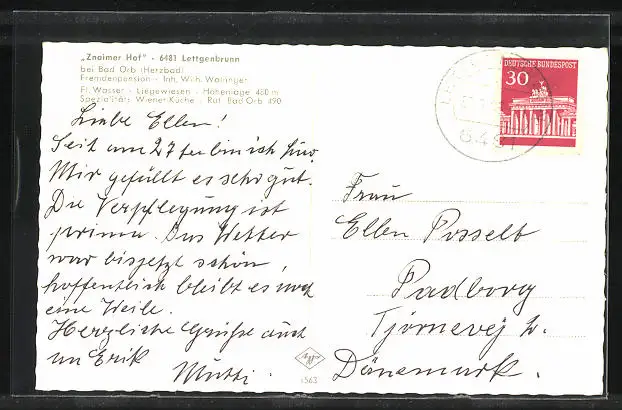 „Znaimer Hof" - 6481 Lettgenbrunn
bei Bad Orb (Herzbad)
Fremdenpension - Inh. Wilh. Waininger
Fl. Wasser - Liegewiesen - Höhenlage 480 m
Spezialität: Wiener Küche - Ruf Bad Orb 490
Liebe Ellen!
Seit am 27ten bin ich hier.
Mir gefällt es sehr gut.
Die Verpflegung ist
prima. Das Wetter
war bisjetzt schön,
hoffentlich bleibt es noch
eine Weile.
Herzliche Grüße auch
an Erik
Mutti.
DEUTSCHE BUNDESPOST
30
6481
Frau
Ellen Posselt
Padborg
Tjörnevej 2.
Dänemark.
Agfa
1563